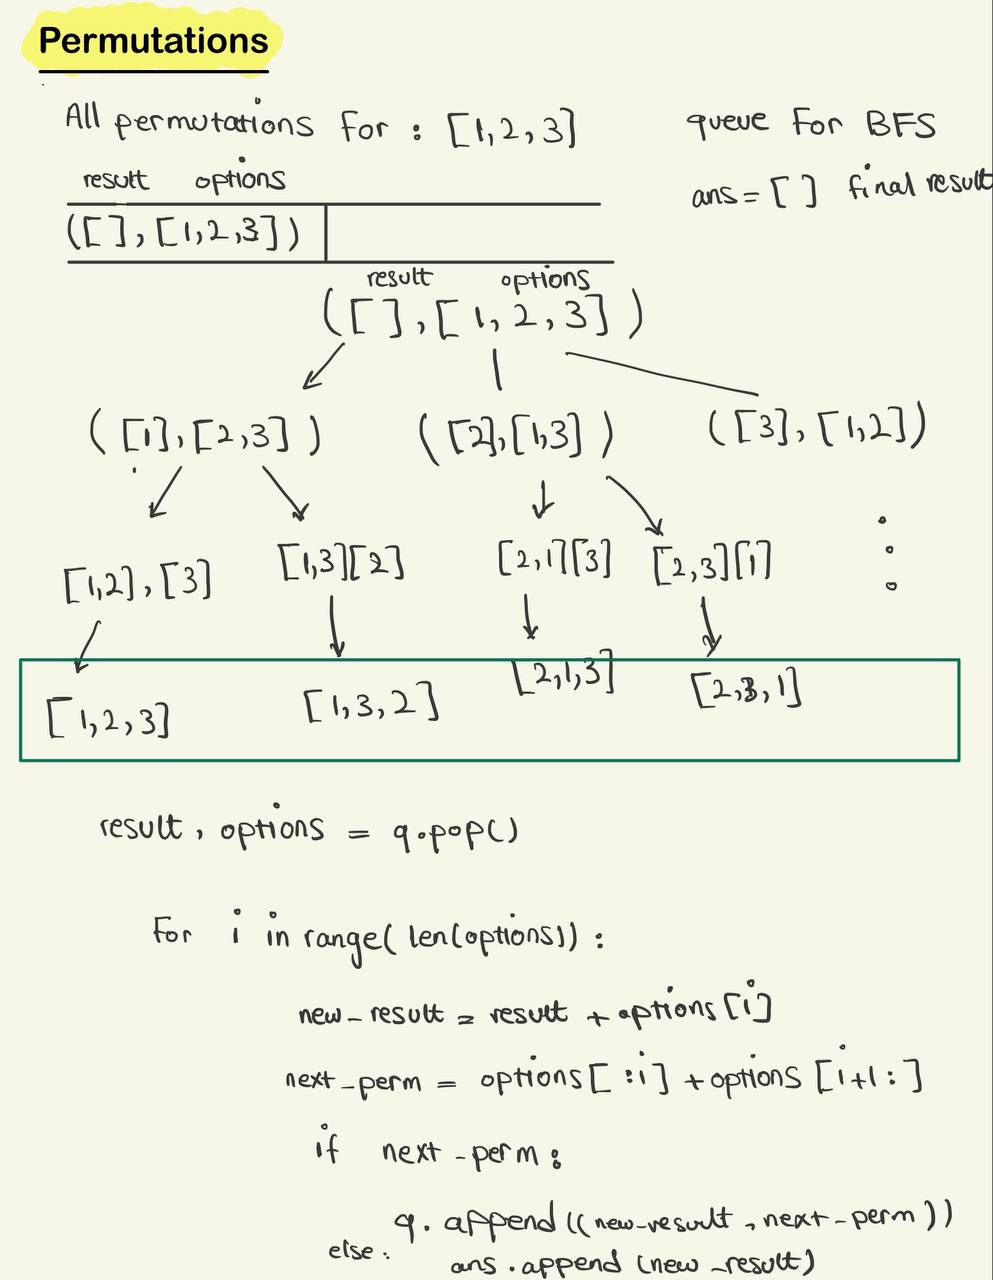 Permutations
All permutations for : [1,2,3]
queue for BFS
ans = [ ] final result
result options
([], [1,2,3])
result options
([ ], [1, 2, 3])
([1], [2,3]) ([2],[1,3]) ([3], [1,2])
[1,2], [3] [1,3][2] [2,1][3] [2,3][1]
[1,2,3] [1,3,2] [2,1,3] [2,3,1]
result, options = q.pop()
for i in range(len(options)):
new_result = result + options[i]
next_perm = options[:i] + options[i+1:]
if next_perm:
q.append((new_result, next_perm))
else:
ans.append(new_result)